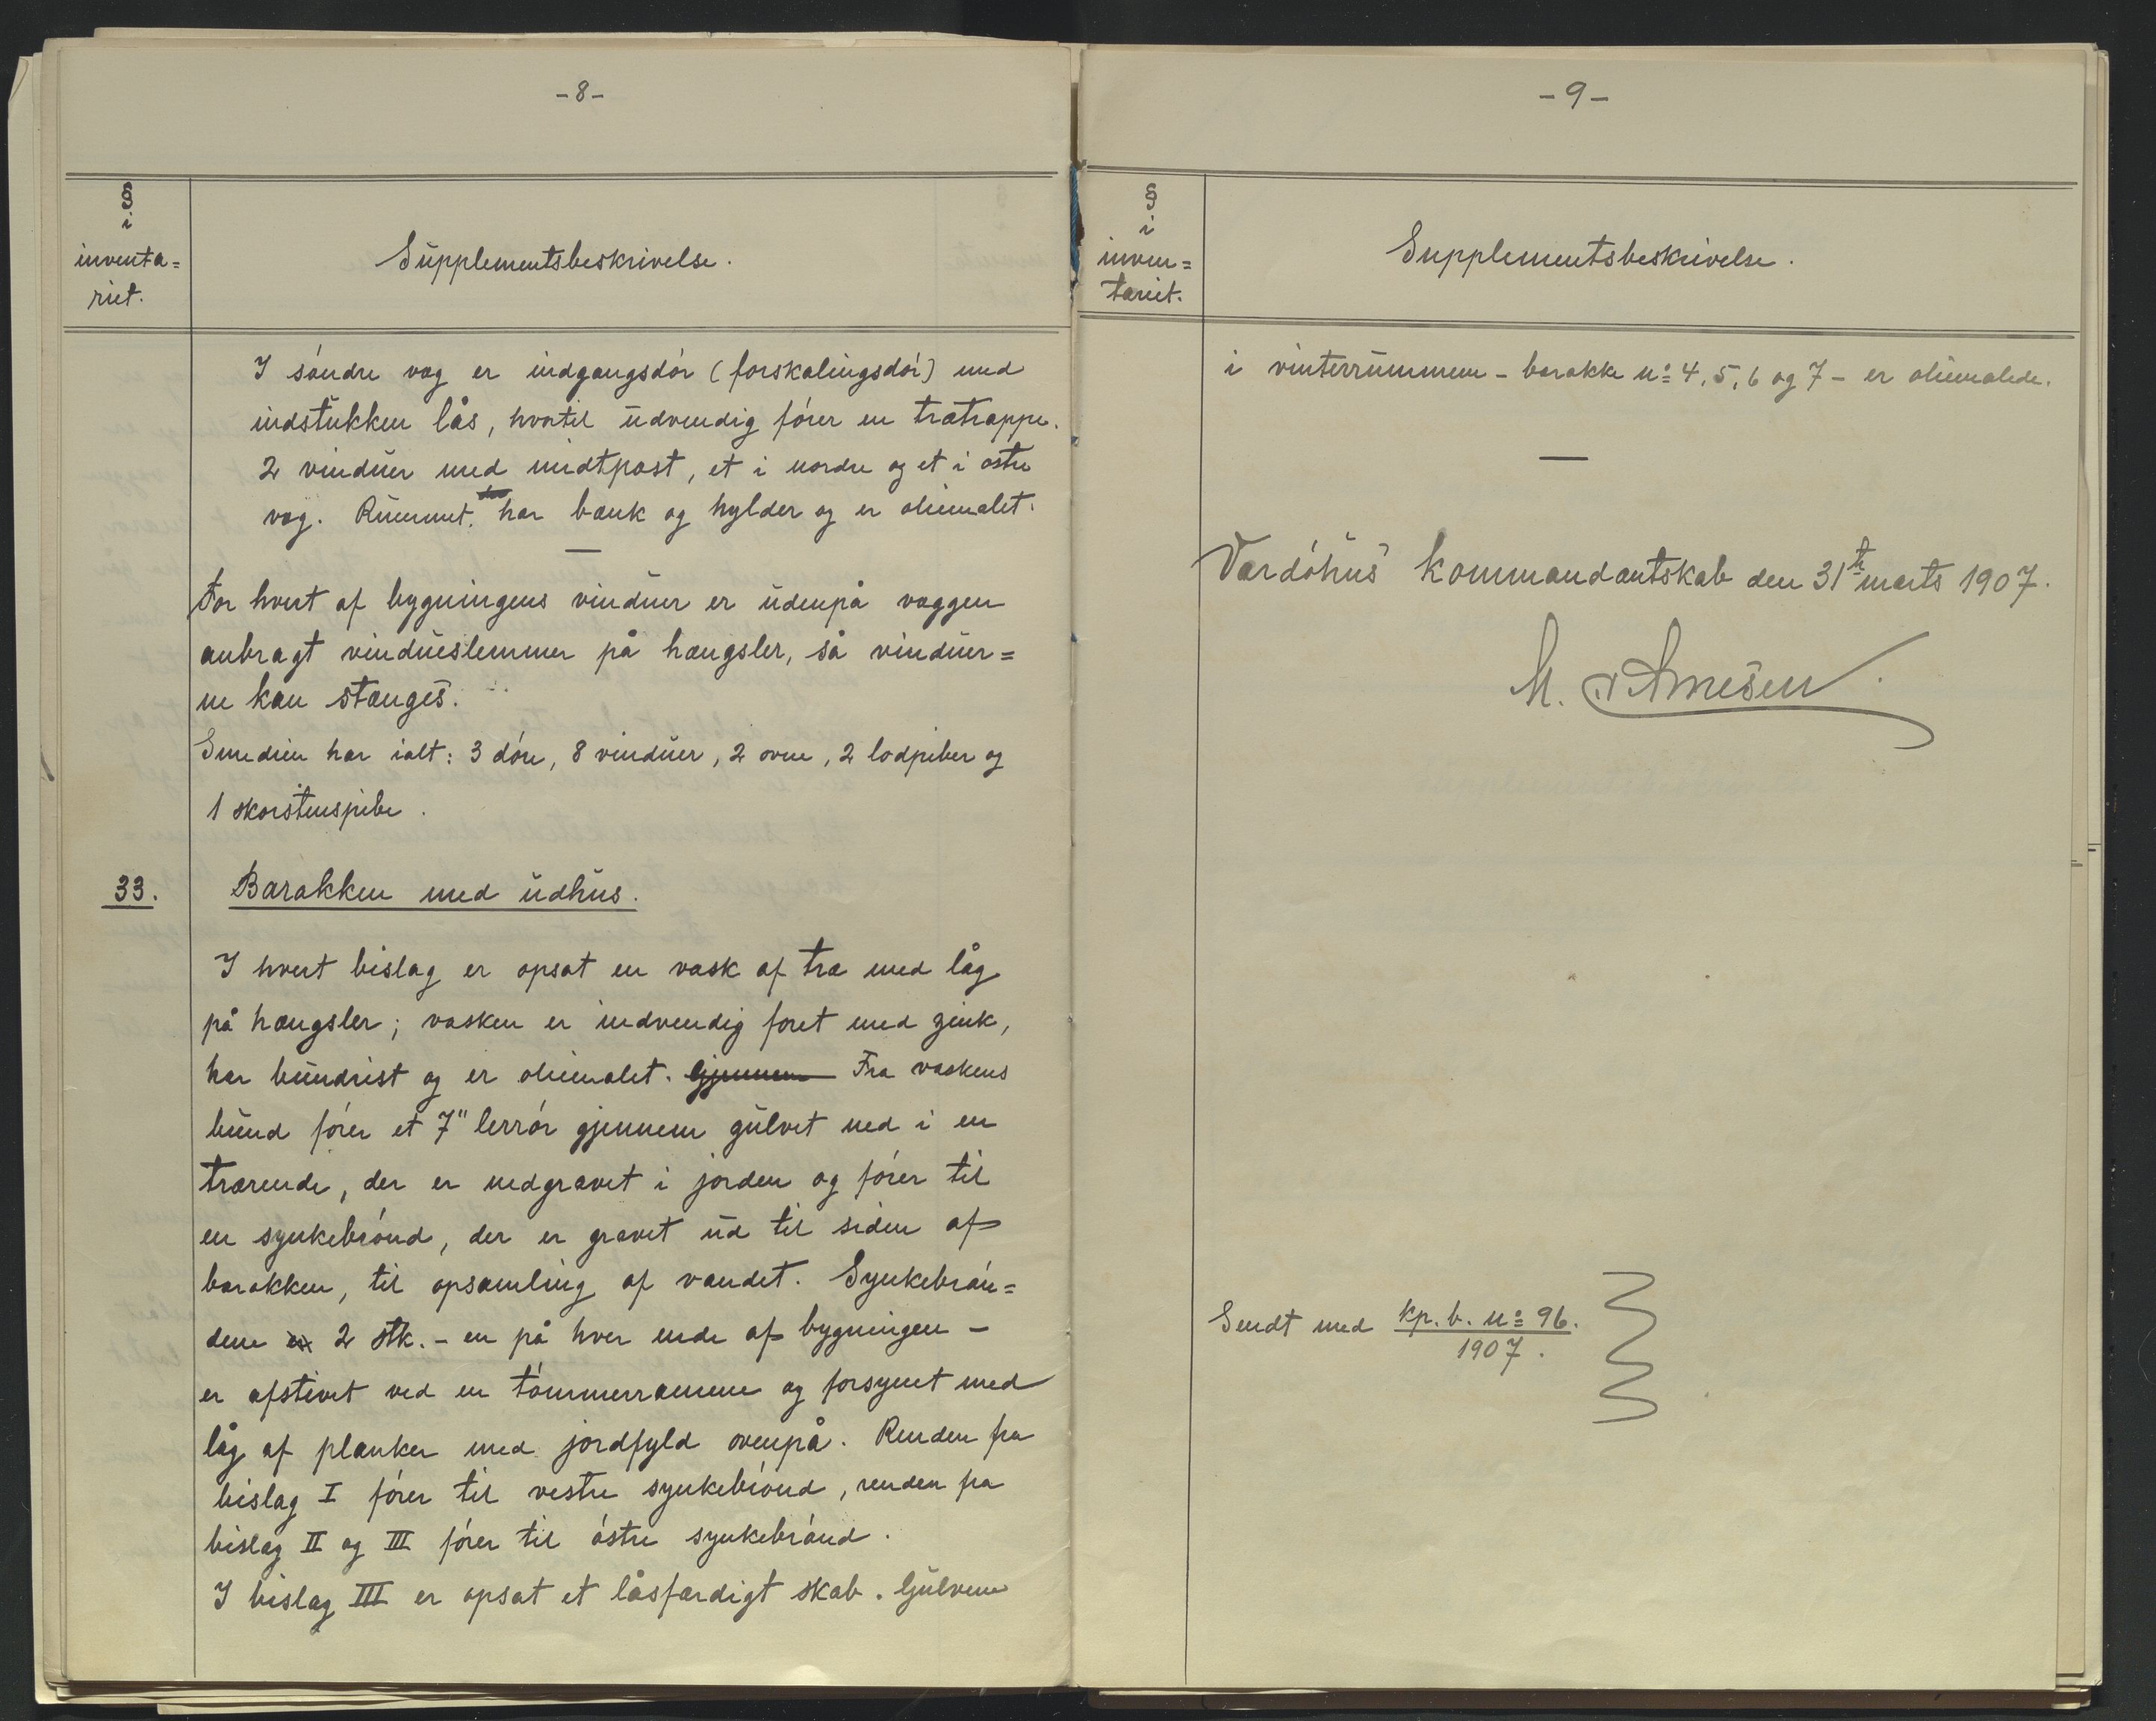 - 8 -
§
i
inventa=
riet.
Supplementsbeskrivelse.
I søndre væg er indgangsdør (forskalingsdør) med
indstukken lås, hvortil udvendig fører en trætrappe.
2 vinduer med midtpost, et i nordre og et i østre
væg. Rummet har bænk og hylder og er oliemalet.
For hvert af bygningens vinduer er udenpå væggen
anbragt vindueslemmer på hængsler, så vinduer=
ne kan stænges.
Smedien har ialt: 3 døre, 8 vinduer, 2 ovne, 2 lodpiber og
1 skorstenspibe.
33. Barakken med udhus.
I hvert bislag er opsat en vask af træ med låg
på hængsler; vasken er indvendig foret med zink,
har bundrist og er oliemalet. Gjennem Fra vaskens
bund fører et 7" lerrør gjennem gulvet ned i en
trærende, der er nedgravet i jorden og fører til
en synkebrønd, der er gravet ud til siden af
barakken, til opsamling af vandet. Synkebrøn=
dene er 2 stk. - en på hver ende af bygningen -
er afstivet ved en tømmerramme og forsynet med
låg af planker med jordfyld ovenpå. Renden fra
bislag I fører til vestre synkebrønd, renden fra
bislag II og III fører til østre synkebrønd.
I bislag III er opsat et låsfærdigt skab. Gulvene
- 9 -
§
i
inven=
tariet.
Supplementsbeskrivelse.
i vinterrummene - barakke nº 4, 5, 6 og 7 - er oliemalede.
Vardøhus kommandantskab den 31te marts 1907.
M. Arnesen
Sendt med kp. b. nº 96.
1907.